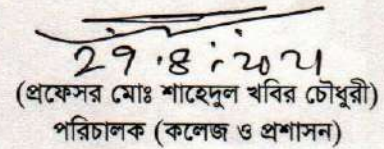 29.8.2021
(প্রফেসর মোঃ শাহেদুল খবির চৌধুরী)
পরিচালক (কলেজ ও প্রশাসন)